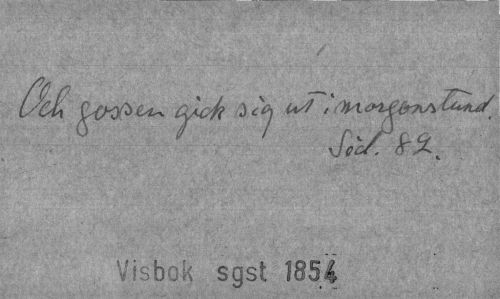 Och gossen gick sig ut i morgonstund.
Söd. 82.
Visbok sgst 1854